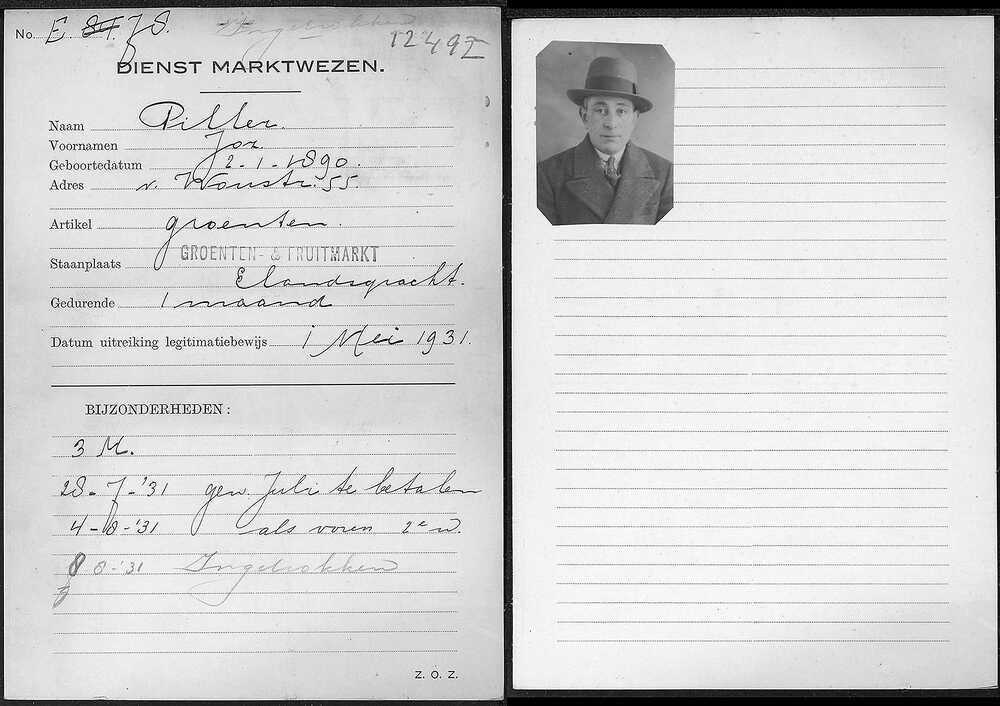 No. E. 81. 78. Ingetrokken
12497
DIENST MARKTWEZEN.
Naam Pitter.
Voornamen Joz.
Geboortedatum 2-1-1890.
Adres v. Woustr. 55.
Artikel groenten.
GROENTEN- & FRUITMARKT
Staanplaats
Elandsgracht.
Gedurende 1 maand
Datum uitreiking legitimatiebewijs 1 Mei 1931.
BIJZONDERHEDEN:
3 M.
28-7-'31 gew. Juli te betalen
4-8-'31 als voren 2e w.
8-'31 Ingetrokken
Z. O. Z.